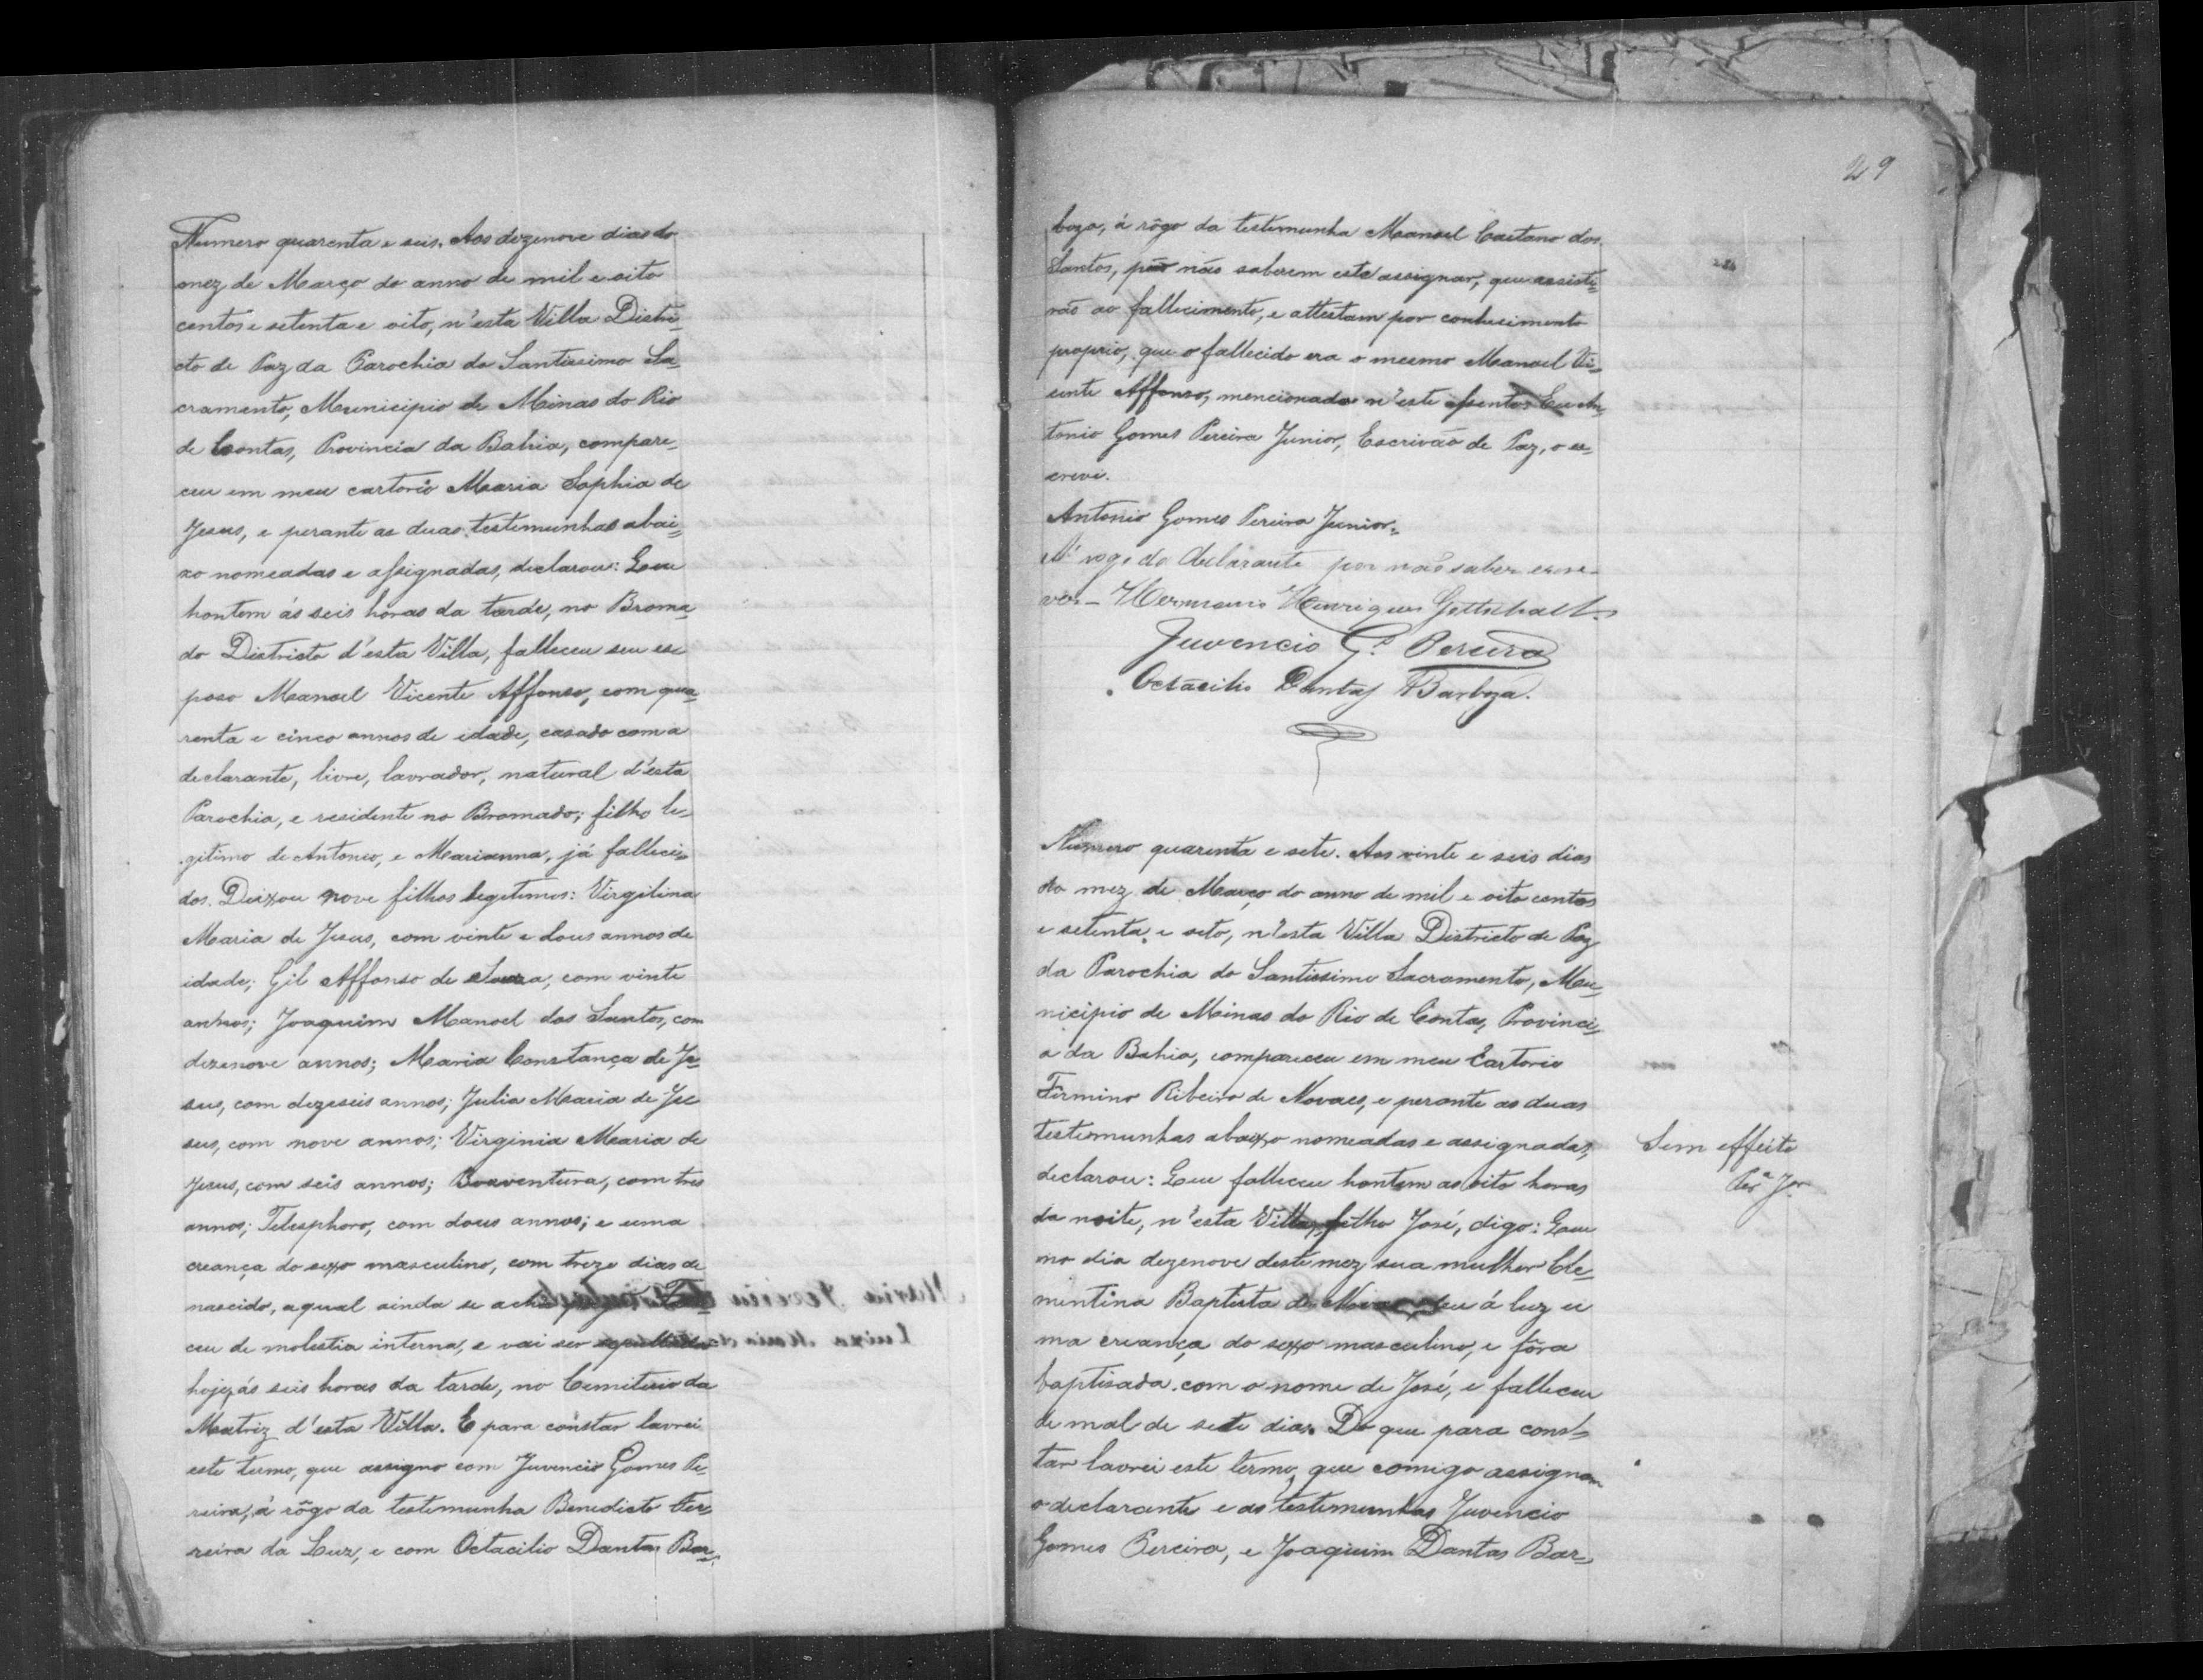 Numero quarenta e seis. Aos dezenove dias do
mez de Março do anno de mil e oito
centos e setenta e oito, n'esta Villa Distri-
cto de Paz da Parochia do Santissimo Sa-
cramento, Municipio de Minas do Rio
de Contas, Provincia da Bahia, compare-
ceu em meu cartorio Maria Sophia de
Jesus, e perante as duas testemunhas abai-
xo nomeadas e assignadas, declarou: Que
hontem ás seis horas da tarde, no Broma-
do Districto d'esta Villa, falleceu seu es-
poso Manoel Vicente Affonso, com qua-
renta e cinco annos de idade, casado com a
declarante, livre, lavrador, natural d'esta
Parochia, e residente no Bromado; filho le-
gitimo de Antonio, e Marianna, já falleci-
dos. Deixou nove filhos legitimos: Virgilina
Maria de Jesus, com vinte e dous annos de
idade; Gil Affonso de Souza, com vinte
annos; Joaquim Manoel dos Santos, com
dezenove annos; Maria Constança de Je-
sus, com dezeseis annos; Julia Maria de Je-
sus, com nove annos; Virginia Maria de
Jesus, com seis annos; Boaventura, com tres
annos; Telesphoro, com dous annos; e uma
creança do sexo masculino, com treze dias de
nascido, a qual ainda se acha
ceu de molestia interna, e vai ser sepultado
hoje, ás seis horas da tarde, no Cemiterio da
Matriz d'esta Villa. E para constar lavrei
este termo, que assigno com Juvencio Gomes Pe-
reira, á rôgo da testemunha Benedicto Fer-
reira da Luz, e com Octacilio Dantas Bar-
29
boza, á rôgo da testemunha Manoel Caetano dos
Santos, por não saberem este assignar, que assisti-
rão ao fallecimento, e attestam por conhecimento
proprio, que o fallecido era o mesmo Manoel Vi-
cente Affonso, mencionado n'este assento. Eu An-
tonio Gomes Pereira Junior, Escrivão de Paz, o es-
crevi.
Antonio Gomes Pereira Junior.
A' rogo do declarante por não saber escre-
ver - Hermano Henriques
Juvencio G.s Pereira
Octacilio Dantas Barboza.
Numero quarenta e sete. Aos vinte e seis dias
do mez de Março do anno de mil e oito centos
e setenta e oito, n'esta Villa Districto de Paz
da Parochia do Santissimo Sacramento, Mu-
nicipio de Minas do Rio de Contas, Provinci-
a da Bahia, compareceu em meu Cartorio
Firmino Ribeiro de Novaes, e perante as duas
testemunhas abaixo nomeadas e assignadas,
declarou: Que falleceu hontem as oito horas
da noite, n'esta Villa, filho José, digo: Que
no dia dezenove deste mez sua mulher Cle-
mentina Baptista de deu á luz u
ma creança do sexo masculino, e fôra
baptisada com o nome de José, e falleceu
de mal de sete dias. Do que para cons-
tar lavrei este termo, que comigo assignam
o declarante e as testemunhas Juvencio
Gomes Pereira, e Joaquim Dantas Bar-
Sem effeito
Per.a J.or